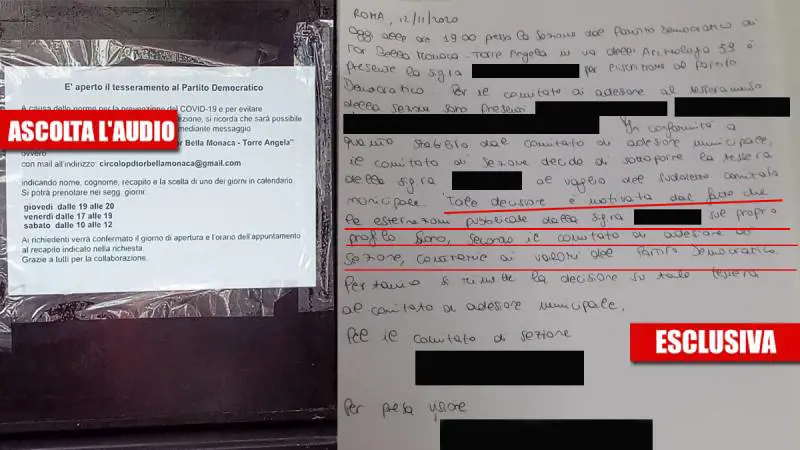 E' aperto il tesseramento al Partito Democratico
A causa delle norme per la prevenzione del COVID-19 e per evitare
ezione, si ricorda che sarà possibile
mediante messaggio
or Bella Monaca - Torre Angela"
ovvero
con mail all'indirizzo: circolopdtorbellamonaca@gmail.com
indicando nome, cognome, recapito e la scelta di uno dei giorni in calendario.
Si potrà prenotare nei segg. giorni:
giovedì dalle 19 alle 20
venerdì dalle 17 alle 19
sabato dalle 10 alle 12
Ai richiedenti verrà confermato il giorno di apertura e l'orario dell'appuntamento
al recapito indicato nella richiesta.
Grazie a tutti per la collaborazione.
ASCOLTA L'AUDIO
ROMA, 12/11/2020
Oggi alle ore 19.00 presso la sezione del Partito Democratico di
Tor Bella Monaca - Torre Angela in via dell'Archeologia 59 è
presente la sig.ra per iscriversi al Partito
Democratico. Per il comitato di adesione al tesseramento
della sezione sono presenti
In conformità a
quanto stabilito dal comitato di adesione municipale,
il comitato di sezione decide di sottoporre la tessera
della sig.ra al vaglio del suddetto comitato
municipale. Tale decisione è motivata dal fatto che
le esternazioni pubblicate dalla sig.ra sul proprio
profilo sono, secondo il comitato di adesione di
sezione, contrarie ai valori del Partito Democratico.
Pertanto si rimette la decisione su tale tessera
al comitato di adesione municipale.
Per il comitato di sezione
Per presa visione
ESCLUSIVA